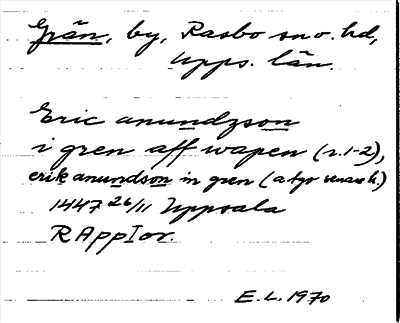 Grän, by, Rasbo sn o. hd,
Upps. län.
Eric anundzson
i gren aff wapen (r. 1-2),
erik anundson in gren (a tgo
1447 26/11 Uppsala
RAppIor.
E.L. 1970